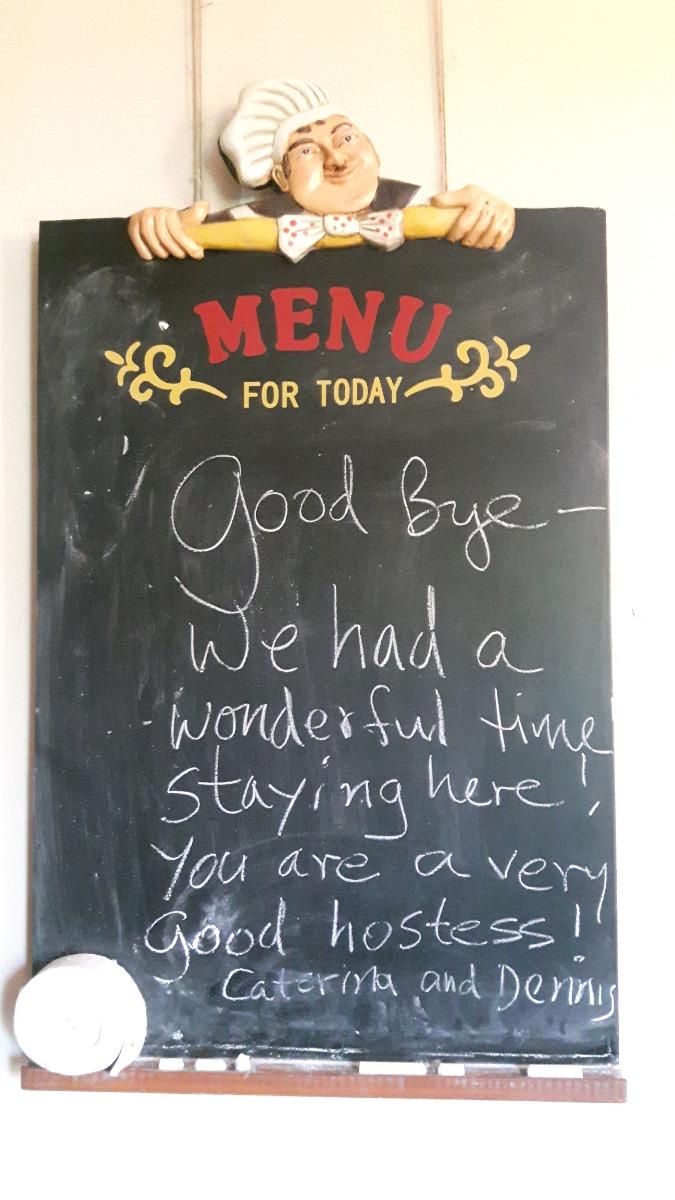 MENU
FOR TODAY
Good Bye -
We had a
wonderful time
staying here!
You are a very
good hostess!
Caterina and Dennis